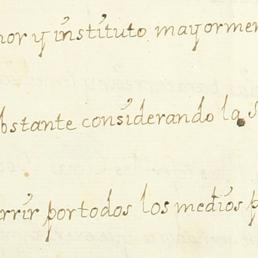 nor y instituto mayormen
obstante considerando la s
rrir por todos los medios p